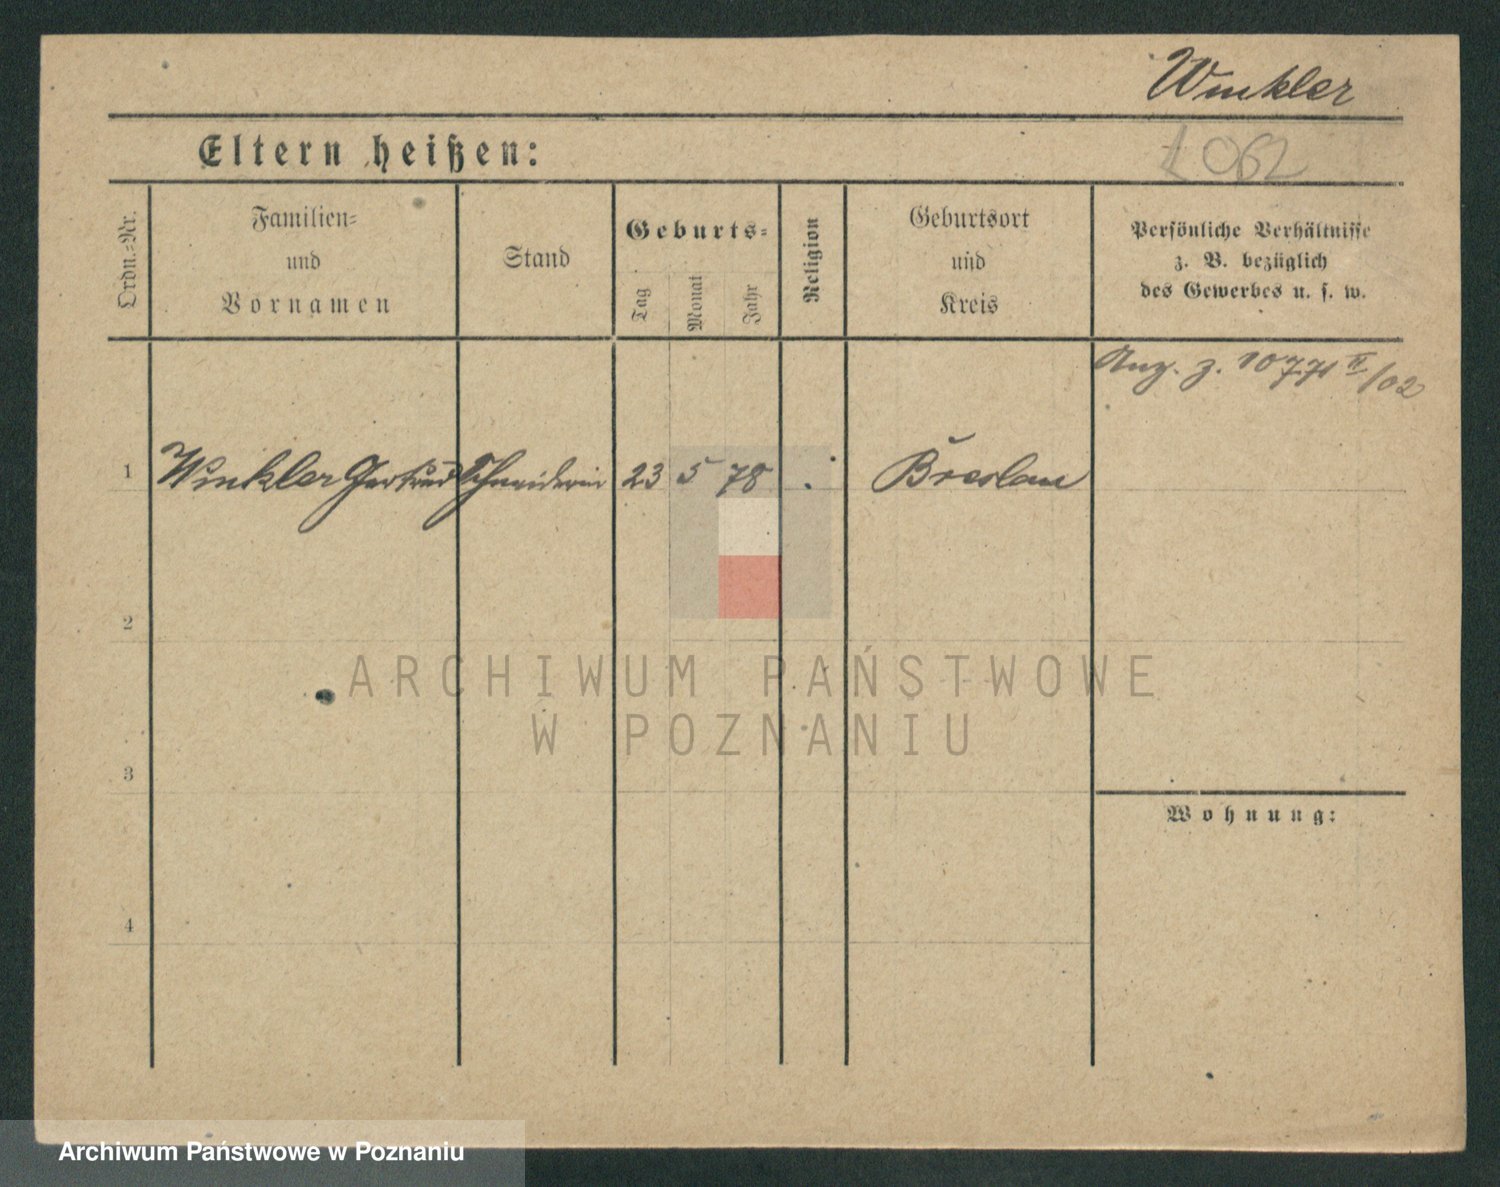 Winkler
Eltern heißen:
1062
Ordn.-Nr.
Familien-
und
Vornamen
Stand
Geburts-
Tag
Monat
Jahr
Religion
Geburtsort
und
Kreis
Persönliche Verhältnisse
z. B. bezüglich
des Gewerbes u. s. w.
Anz. z. 10771 II/02
1 Winkler Gertrud Schneiderin 23 5 78 Breslau
2
ARCHIWUM PAŃSTWOWE
W POZNANIU
3
Wohnung:
4
Archiwum Państwowe w Poznaniu